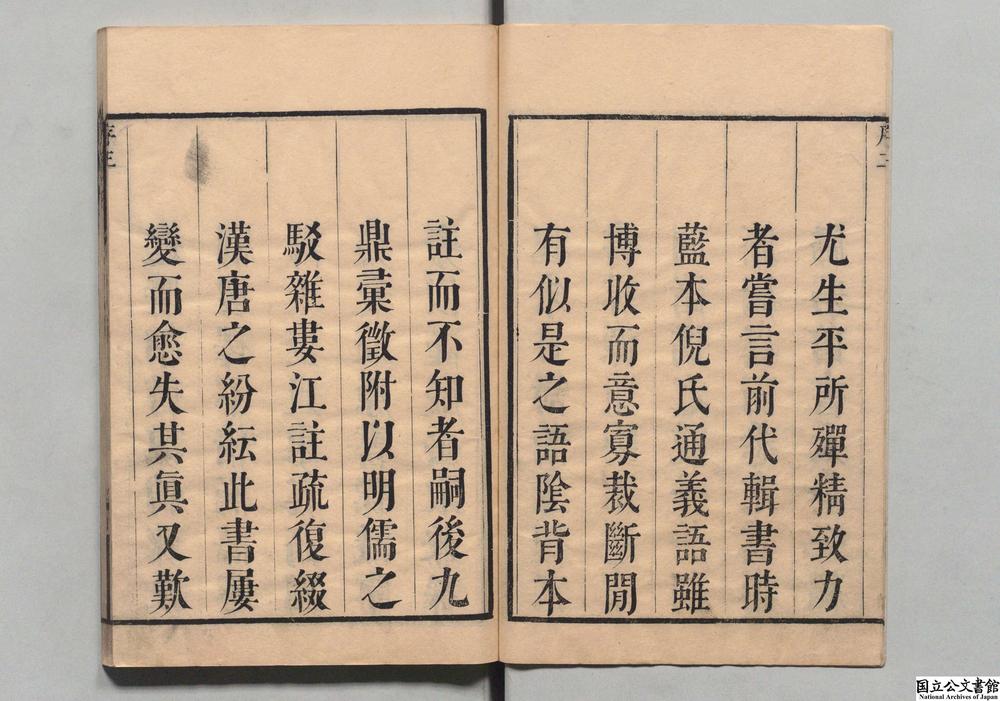 尤生平所殫精致力
者嘗言前代輯書時
藍本倪氏通義語雖
博收而意寡裁斷閒
有似是之語陰背本
註而不知者嗣後九
鼎彚徵附以明儒之
駁雜婁江註疏復綴
漢唐之紛紜此書屢
變而愈失其眞又歎
序三
国立公文書館
National Archives of Japan